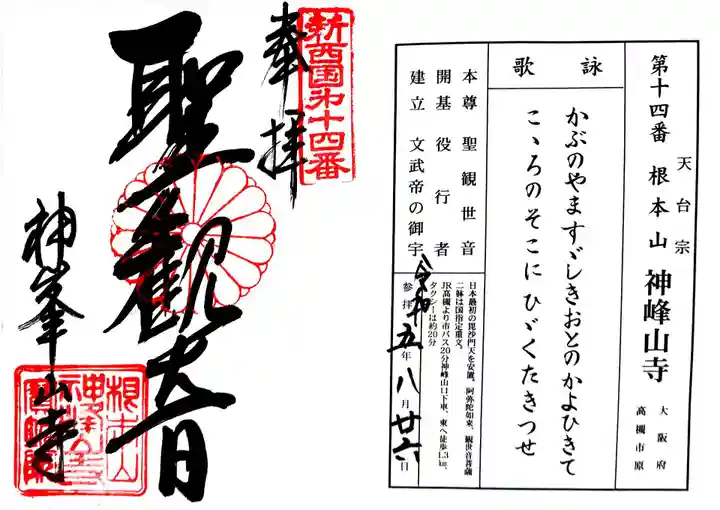 第十四番 天台宗 根本山 神峰山寺 大阪府 高槻市原
詠歌
かぶのやますゞしきおとのかよひきて
こゝろのそこにひゞくたきつせ
本尊 聖観世音
開基 役行者
建立 文武帝の御宇
日本最初の毘沙門天を安置。阿弥陀如来、観世音菩薩
二躰は国指定重文。
JR高槻より市バス20分神峰山口下車、東へ徒歩1.3㎞。
タクシーは約20分
参拝 令和五年八月廿六日
新西国第十四番
奉拝
聖観世音
神峯山寺
根本山